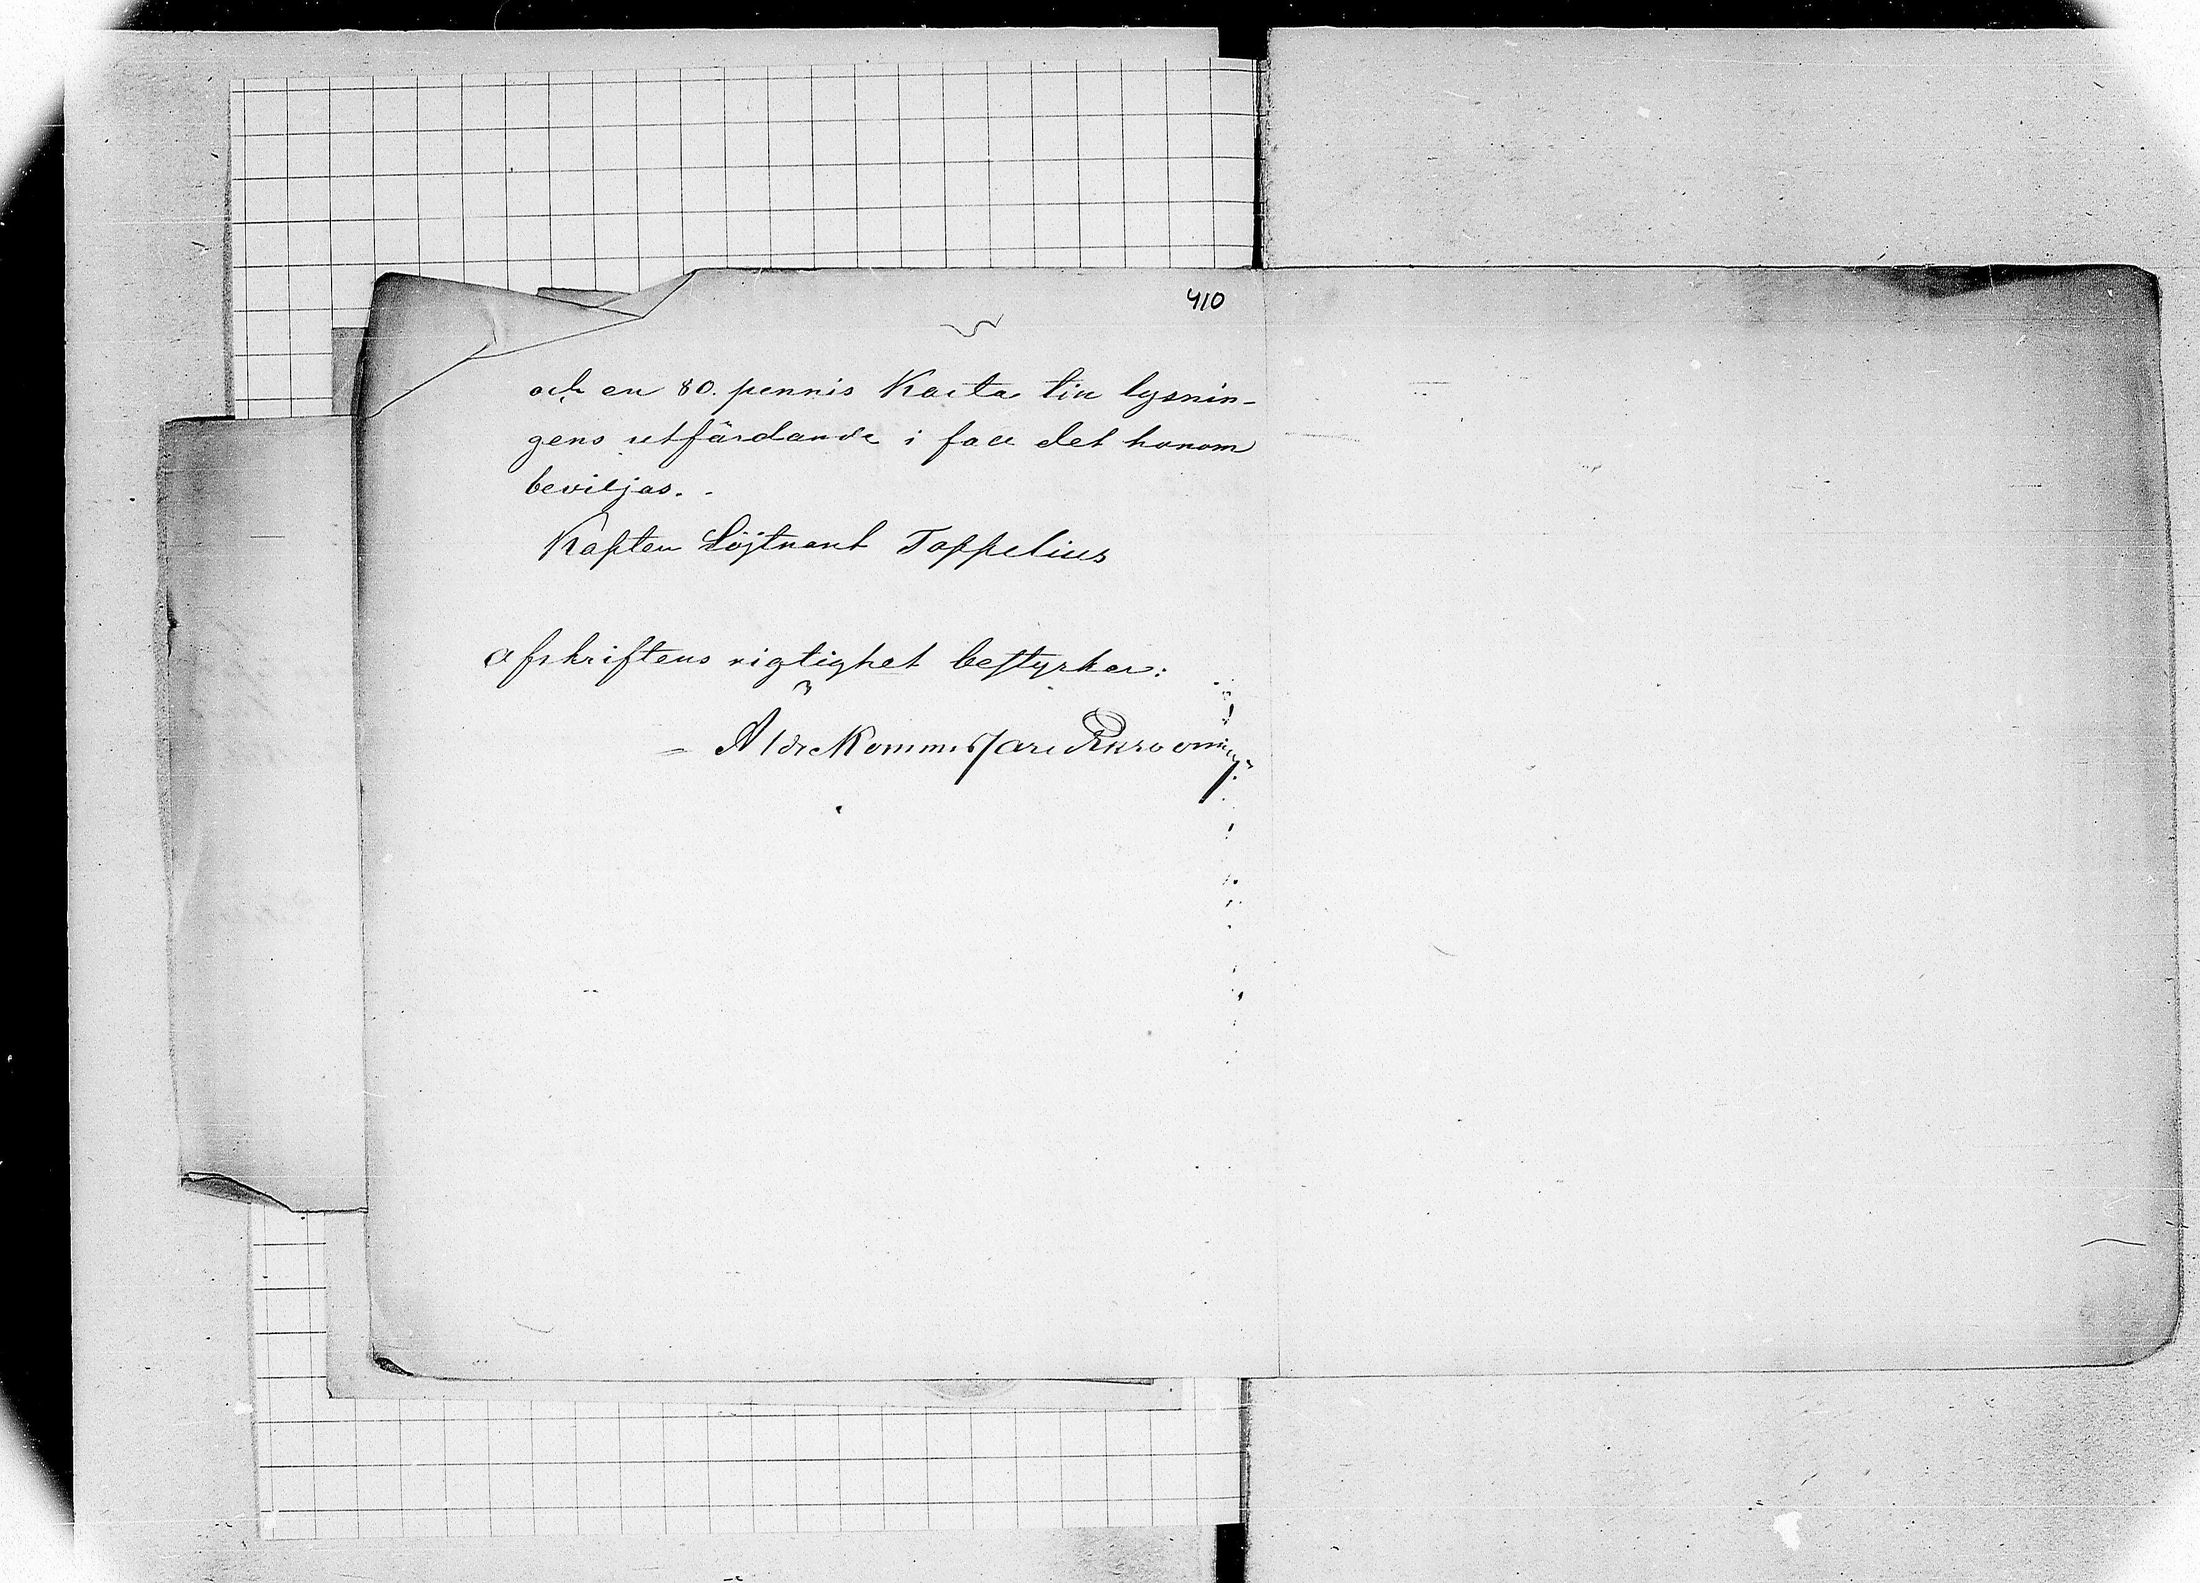 410
och en 80. pennis Karta till lysnin-
gens utfärdande i fall det honom
beviljas.
Kapten Löjtnant Toppelius
afskriftens rigtighet bestyrker:
Äldre Kommissarie